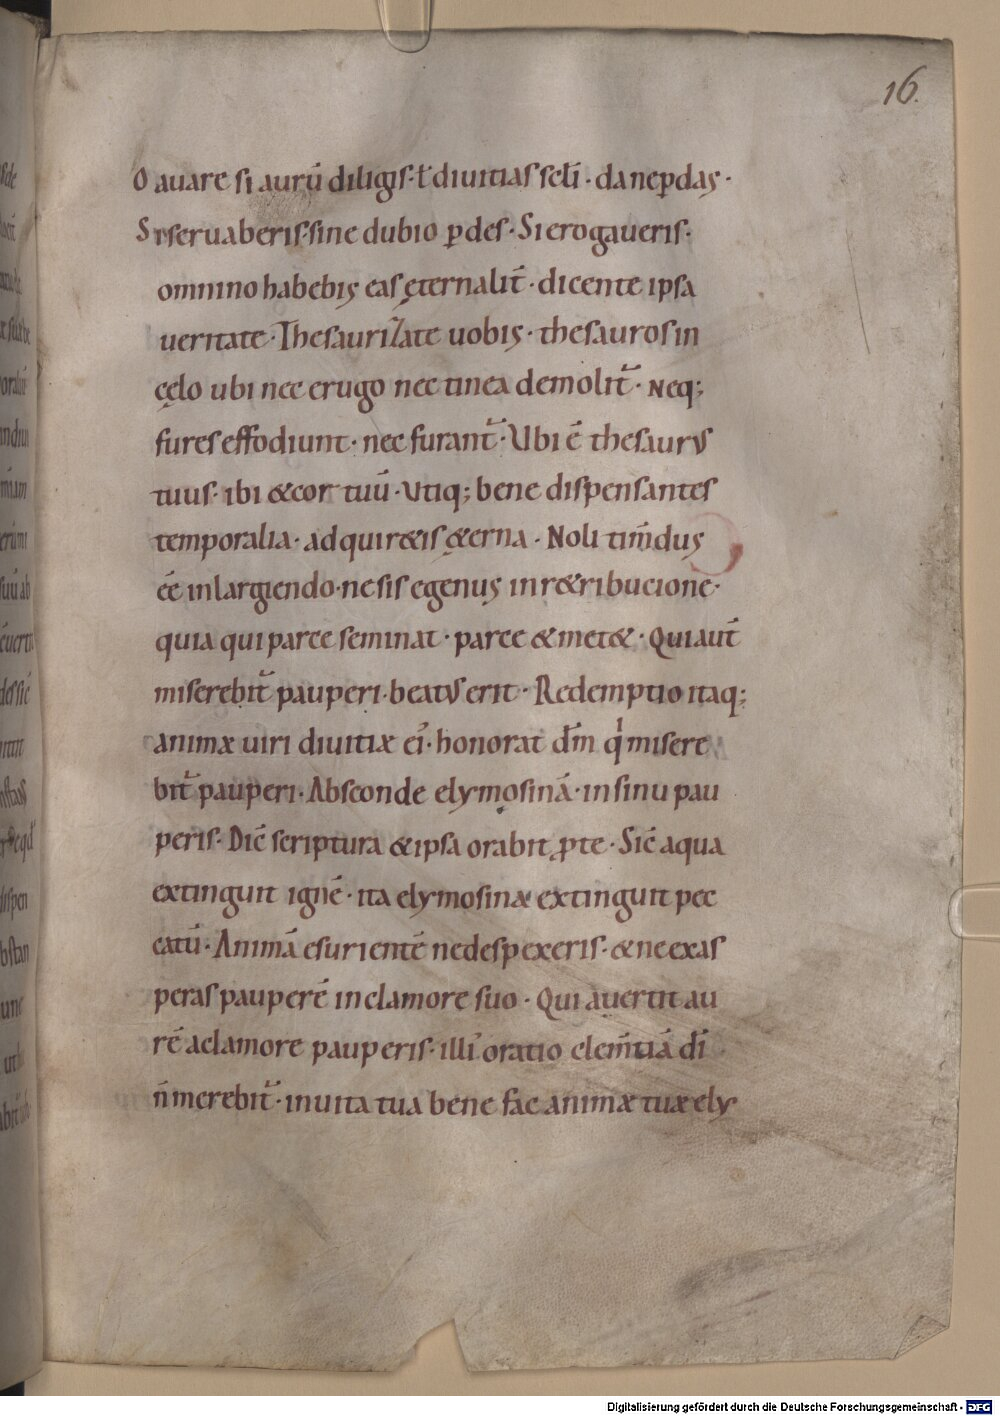 16.
O auare si aurū diligis · ł diuitias scłi · da ne ꝑdas ·
Si seruaberis · sine dubio ꝑdes · Si erogaueris ·
omnino habebis eas ęternalit̄ · dicente ipsa
ueritate · Thesaurizate uobis · thesauros in
cęlo ubi nec erugo nec tinea demolit᷑ · Neq;
fures effodiunt · nec furant᷑ · Ubi ē thesaurus
tuus · ibi & cor tuū · Utiq; bene dispensantes
temporalia · adquir&is &erna · Noli timidus
eē in largiendo · ne sis egenus in r&ribucione ·
quia qui parce seminat · parce & met& · Qui aut̄
miserebit᷑ pauperi · beatus erit · Redemptio itaq;
animæ uiri diuitiæ ei᷒ · honorat dm̄ qͥ misere
bit᷑ pauperi · Absconde elymosinā · in sinu pau
peris · Dic̄ scriptura & ipsa orabit ꝓ te · Sic̄ aqua
extinguit ignē · ita elymosinæ extinguit pec
catū · Animā esurientē ne despexeris · & ne exas
peras pauperē in clamore suo · Qui auertit au
rē a clamore pauperis · illi᷒ oratio clem̄tiā dī
n̄ merebit᷑ · in uita tua bene fac animæ tuæ ely
Digitalisierung gefördert durch die Deutsche Forschungsgemeinschaft - DFG